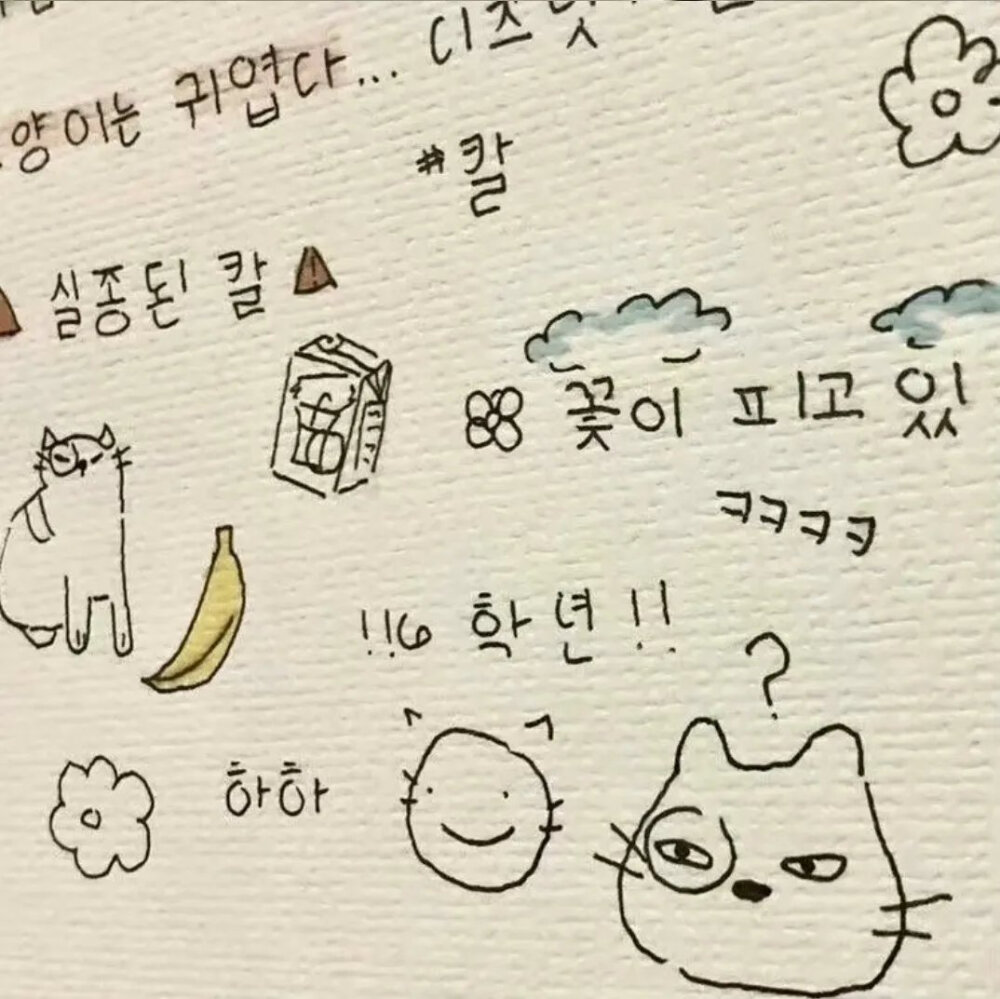 양이는 귀엽다...
#칼
실종된 칼
꽃이 피고 있
ㅋㅋㅋㅋ
!!6학년!!
?
하하